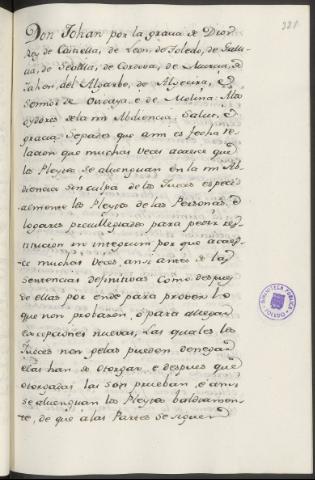 321
Don Johan por la gracia de Dios
Rey de Castilla, de Leon, de Toledo, de Galli-
cia, de Sevilla, de Cordova, de Murcia, de
Jahen, del Algarbe, de Algecira, é
Sennor de Vizcaya, e de Molina. A los
oydores de la mi Abdiencia. Salut, é
gracia. Sepades que a mi es fecha re-
lacion que muchas veces acaece que
los Pleytos se aluenguan en la mi Ab-
diencia sin culpa de los Jueces especi-
almente los Pleytos de las Personas, é
logares previllegiados para pedir res-
titucion in integrum por que acaes-
ce muchas veces, ansi antes de las
sentencias definitivas como despues
de ellas por ende para provar lo
que non probaron, ó para allegar
excepciones nuevas, las quales los
Jueces non gelas pueden denegar
e las han de otorgar, e despues que
otorgadas las son prueban, e ansi
se aluenguan los Pleytos baldiamen-
te, de que á las Partes se siguen
BIBLIOTECA PUBLICA